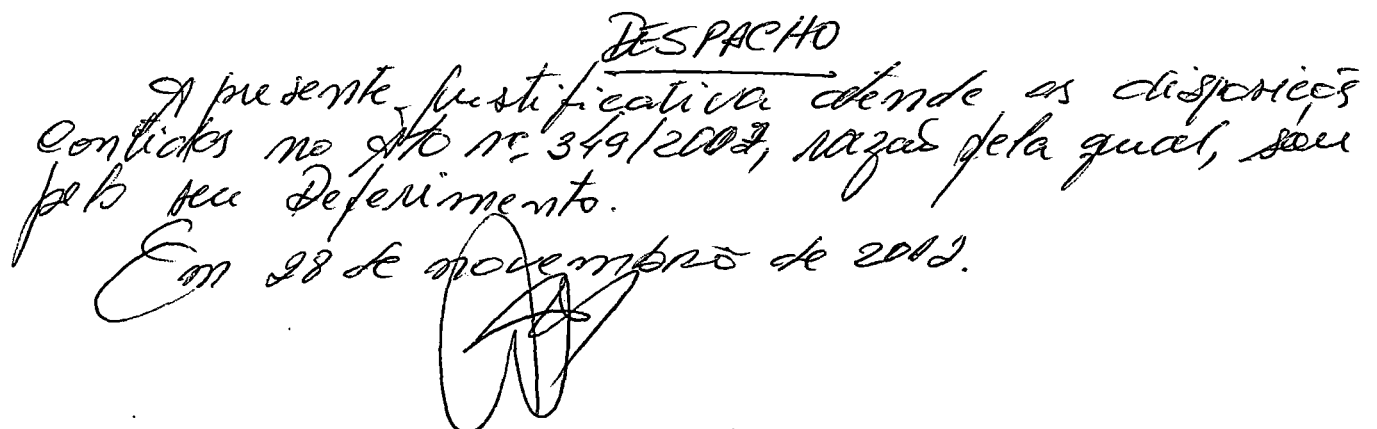 DESPACHO
A presente justificativa atende as disposições
contidas no Ato nº 349/2002, razão pela qual, sou
pelo seu Deferimento.
Em 28 de novembro de 2002.